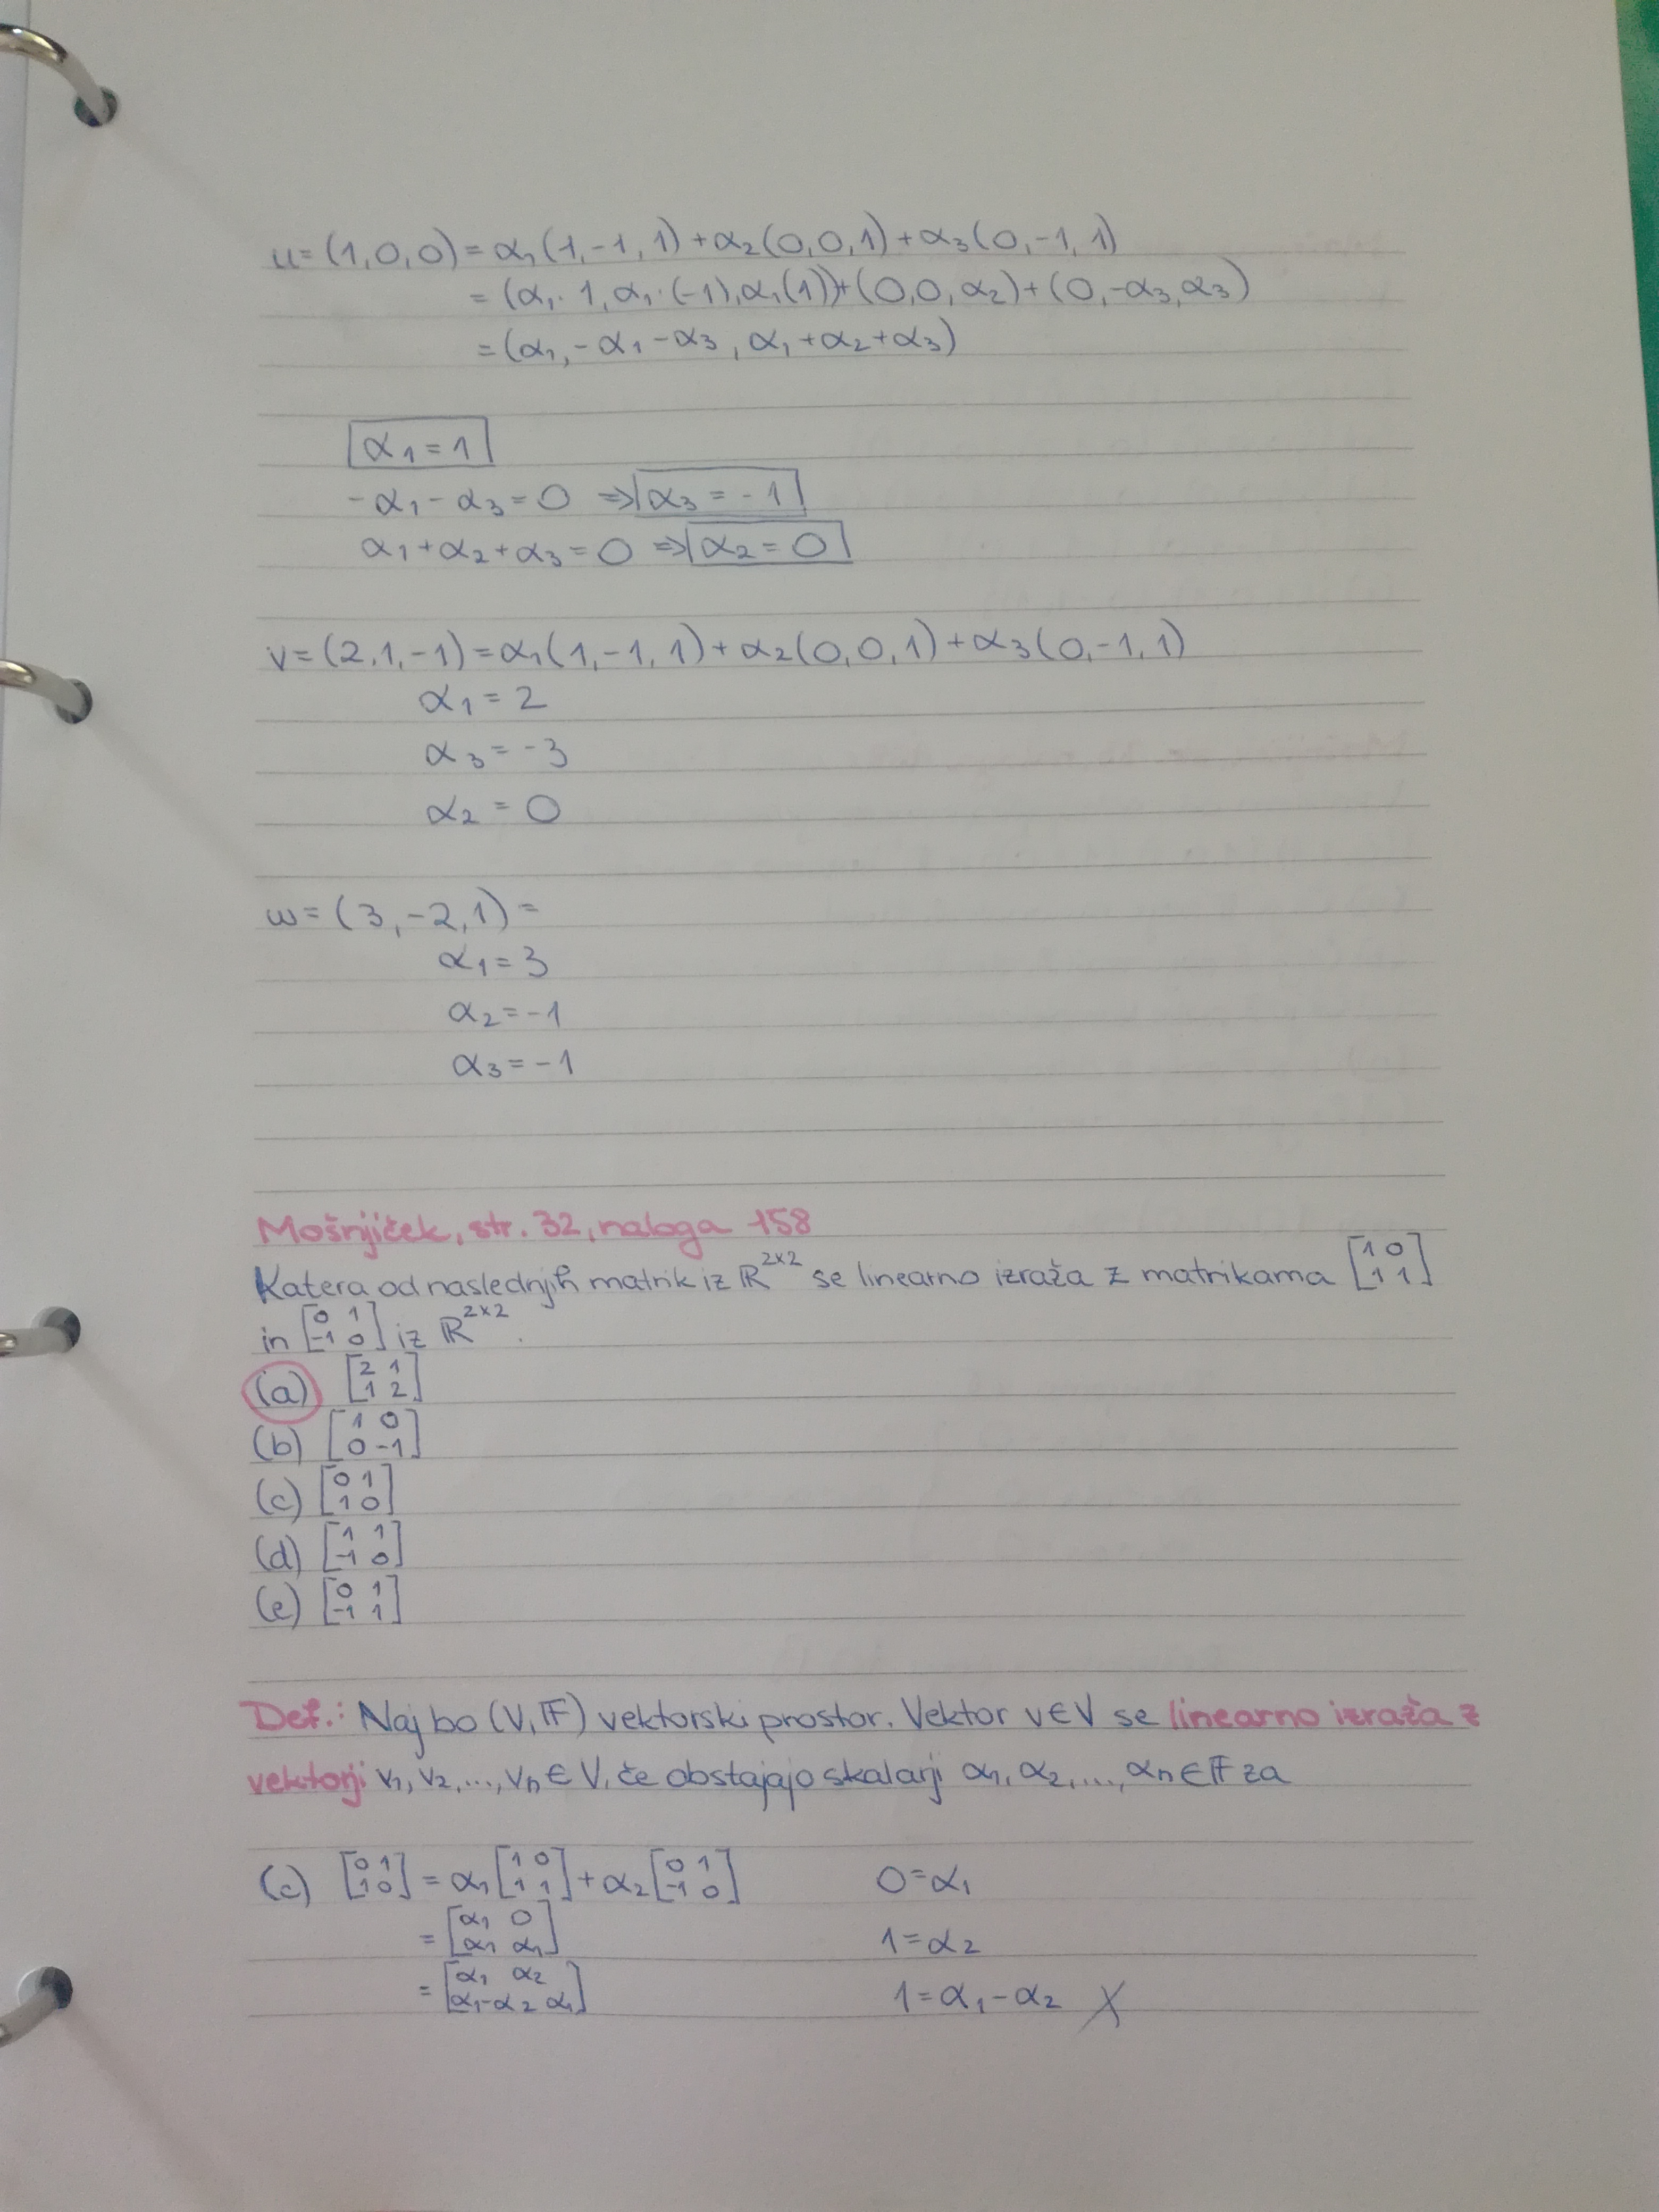 u=(1,0,0)=α₁(1,-1,1)+α₂(0,0,1)+α₃(0,-1,1)
=(α₁·1,α₁·(-1),α₁(1))+(0,0,α₂)+(0,-α₃,α₃)
=(α₁,-α₁-α₃,α₁+α₂+α₃)
α₁=1
-α₁-α₃=0 ⇒ α₃=-1
α₁+α₂+α₃=0 ⇒ α₂=0
v=(2,1,-1)=α₁(1,-1,1)+α₂(0,0,1)+α₃(0,-1,1)
α₁=2
α₃=-3
α₂=0
w=(3,-2,1)=
α₁=3
α₂=-1
α₃=-1
Mošnjiček, str. 32, naloga 158
Katera od naslednjih matrik iz ℝ²ˣ² se linearno izraža z matrikama [1 0; 1 1]
in [0 1; -1 0] iz ℝ²ˣ².
(a) [2 1; 1 2]
(b) [1 0; 0 -1]
(c) [0 1; 1 0]
(d) [1 1; -1 0]
(e) [0 1; -1 1]
Def.: Naj bo (V,𝔽) vektorski prostor. Vektor v∈V se linearno izraža z
vektorji v₁, v₂, ..., vₙ ∈ V, če obstajajo skalarji α₁, α₂, ..., αₙ∈𝔽 za
(c) [0 1; 1 0] = α₁[1 0; 1 1] + α₂[0 1; -1 0] 0=α₁
= [α₁ 0; α₁ α₁] 1=α₂
= [α₁ α₂; α₁-α₂ α₁] 1=α₁-α₂ X